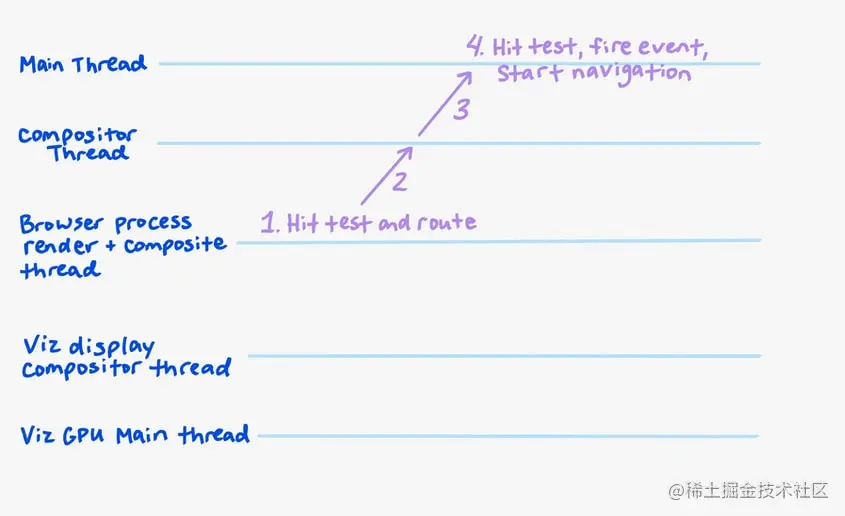 4. Hit test, fire event,
Start navigation
Main Thread
3
Compositor
Thread
2
1. Hit test and route
Browser process
render + composite
thread
Viz display
compositor thread
Viz GPU Main thread
@稀土掘金技术社区